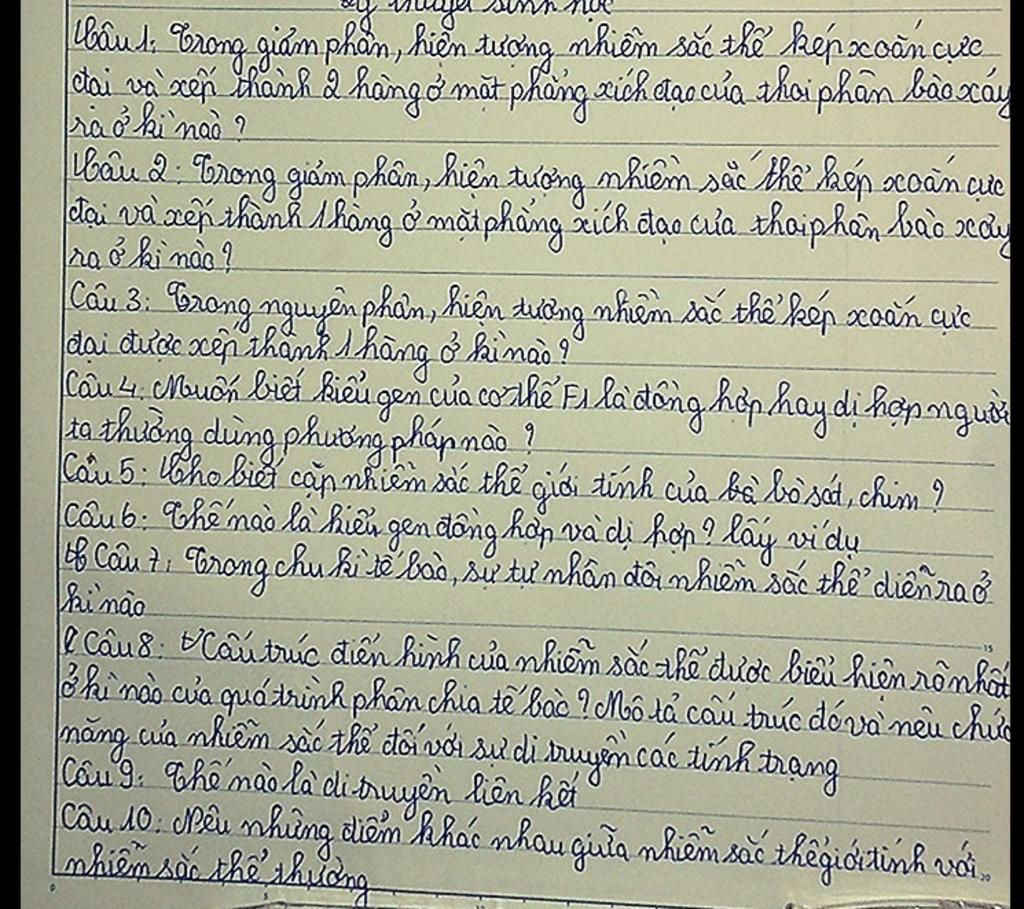 Lý thuyết sinh học
Câu 1: Trong giảm phân, hiện tượng nhiễm sắc thể kép xoắn cực
đại và xếp thành 2 hàng ở mặt phẳng xích đạo của thoi phân bào xảy
ra ở kì nào?
Câu 2: Trong giảm phân, hiện tượng nhiễm sắc thể kép xoắn cực
đại và xếp thành 1 hàng ở mặt phẳng xích đạo của thoi phân bào xảy
ra ở kì nào?
Câu 3: Trong nguyên phân, hiện tượng nhiễm sắc thể kép xoắn cực
đại được xếp thành 1 hàng ở kì nào?
Câu 4: Muốn biết kiểu gen của cơ thể F1 là đồng hợp hay dị hợp người
ta thường dùng phương pháp nào?
Câu 5: Cho biết cặp nhiễm sắc thể giới tính của bà bò sát, chim?
Câu 6: Thế nào là kiểu gen đồng hợp và dị hợp? lấy ví dụ
Câu 7: Trong chu kì tế bào, sự tự nhân đôi nhiễm sắc thể diễn ra ở
kì nào
Câu 8: Cấu trúc điển hình của nhiễm sắc thể được biểu hiện rõ nhất
ở kì nào của quá trình phân chia tế bào? Mô tả cấu trúc đó và nêu chức
năng của nhiễm sắc thể đối với sự di truyền các tính trạng
Câu 9: Thế nào là di truyền liên kết
Câu 10: Nêu những điểm khác nhau giữa nhiễm sắc thể giới tính với
nhiễm sắc thể thường